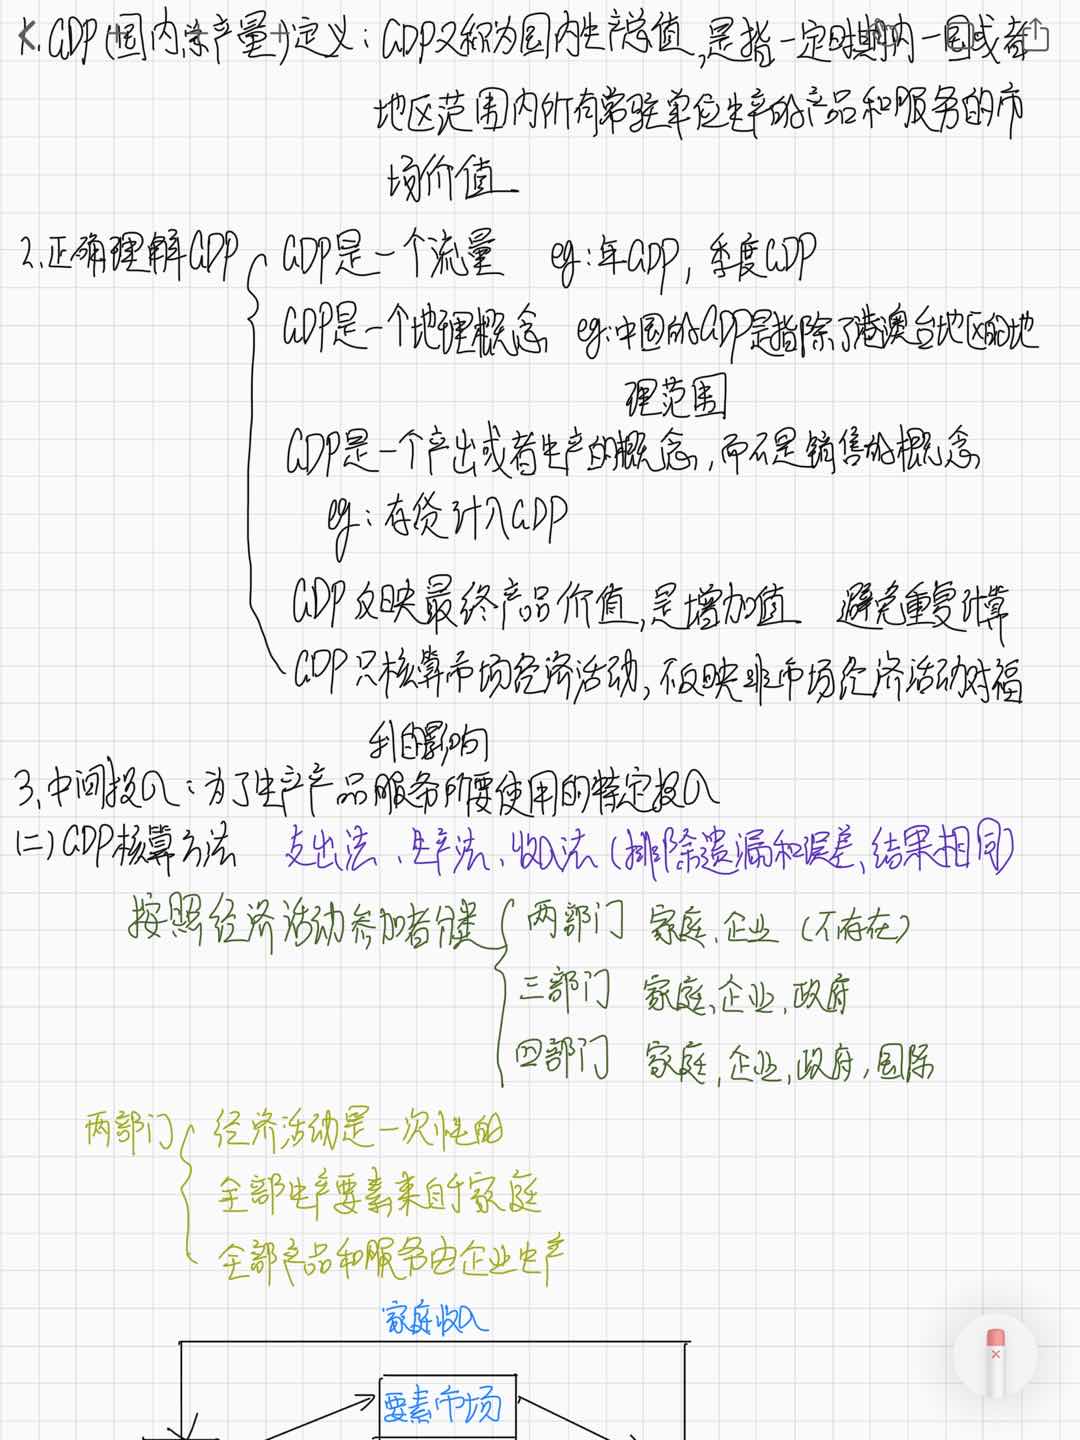 1. GDP(国内总产量)定义：GDP又称为国内生产总值,是指一定时期内一国或者
地区范围内所有常驻单位生产的产品和服务的市
场价值
2.正确理解GDP
GDP是一个流量 eg:年GDP, 季度GDP
GDP是一个地理概念 eg:中国的GDP是指除了港澳台地区的地
理范围
GDP是一个产出或者生产的概念,而不是销售的概念
eg:存货计入GDP
GDP反映最终产品价值,是增加值 避免重复计算
GDP只核算市场经济活动,不反映非市场经济活动对福
利的影响
3.中间投入:为了生产产品服务所要使用的特定投入
(二)GDP核算方法 支出法、生产法、收入法(排除遗漏和误差,结果相同)
按照经济活动参加者分类
两部门 家庭,企业 (不存在)
三部门 家庭,企业,政府
四部门 家庭,企业,政府,国际
两部门
经济活动是一次性的
全部生产要素来自于家庭
全部产品和服务由企业生产
家庭收入
要素市场